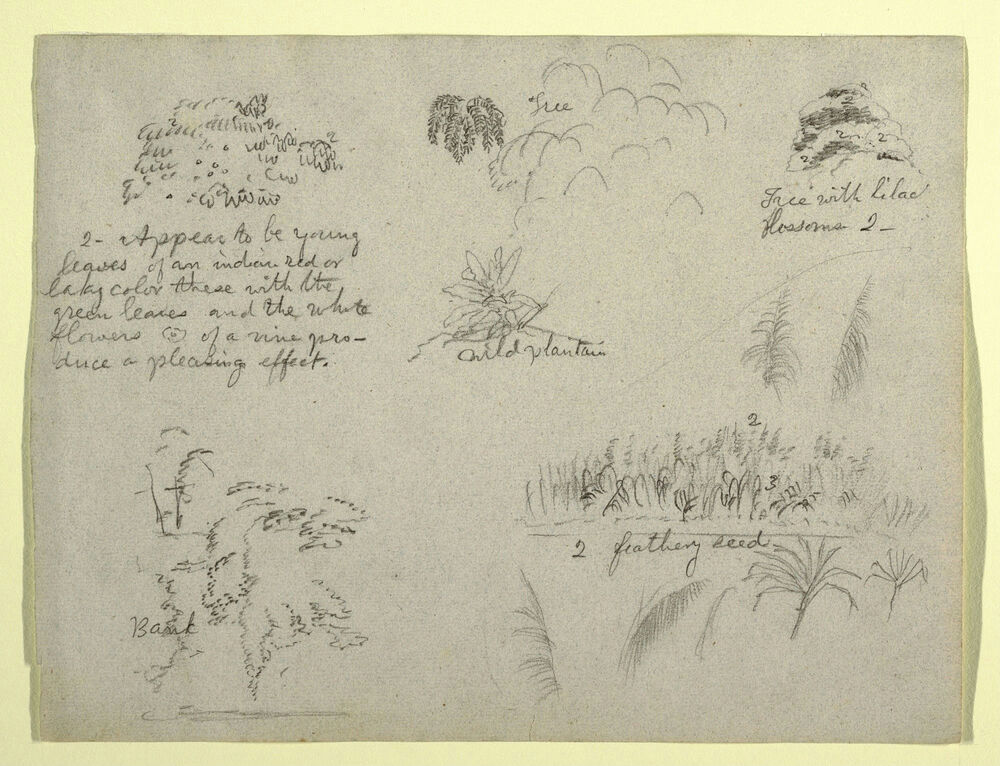 2
2
Tree
2
2
2
2
Tree with lilac
blossoms 2 -
2 - Appear to be young
leaves of an indian red or
color these with the
green leaves and the white
flowers of a vine pro-
duce a pleasing effect.
wild plantain
2
3
2 feathery seed
Bank